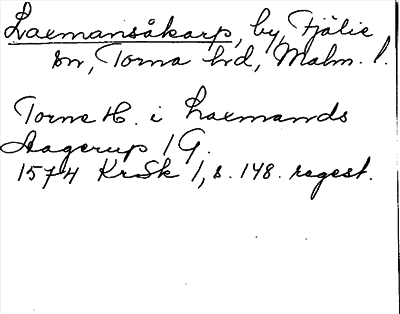 Laxmansåkarp, by, Fjälie
sn, Torna hd, Malm. l.
Torne H. i Laxmands
Aagerup 1 G.
1574 KrSk 1, s. 148. regest.